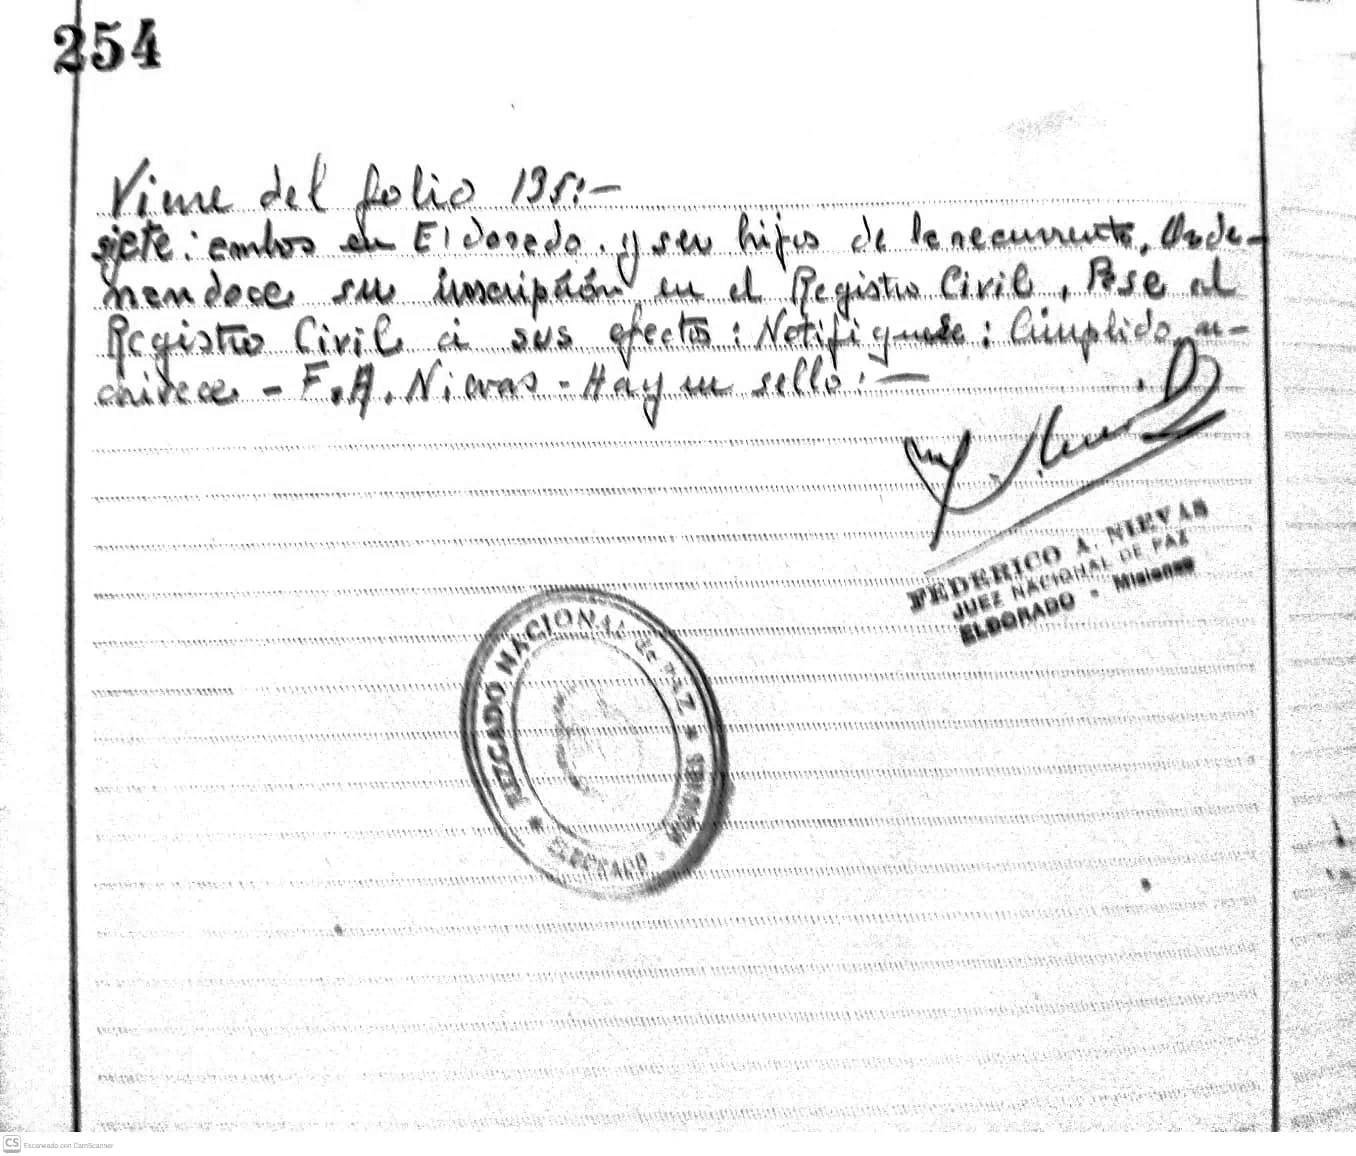 254
Viene del folio 195:-
siete: ambos en Eldorado. y ser hijos de la recurrente, Orde-
nandose su inscripción en el Registro Civil, Pase al
Registro Civil a sus efectos: Notifiquese: Cumplido, ar-
chivece - F.A. Nievas - Hay un sello:-
FEDERICO A. NIEVAS
JUEZ NACIONAL DE PAZ
ELDORADO - Misiones
JUZGADO NACIONAL de PAZ
ELDORADO - MISIONES
CS Escaneado con CamScanner